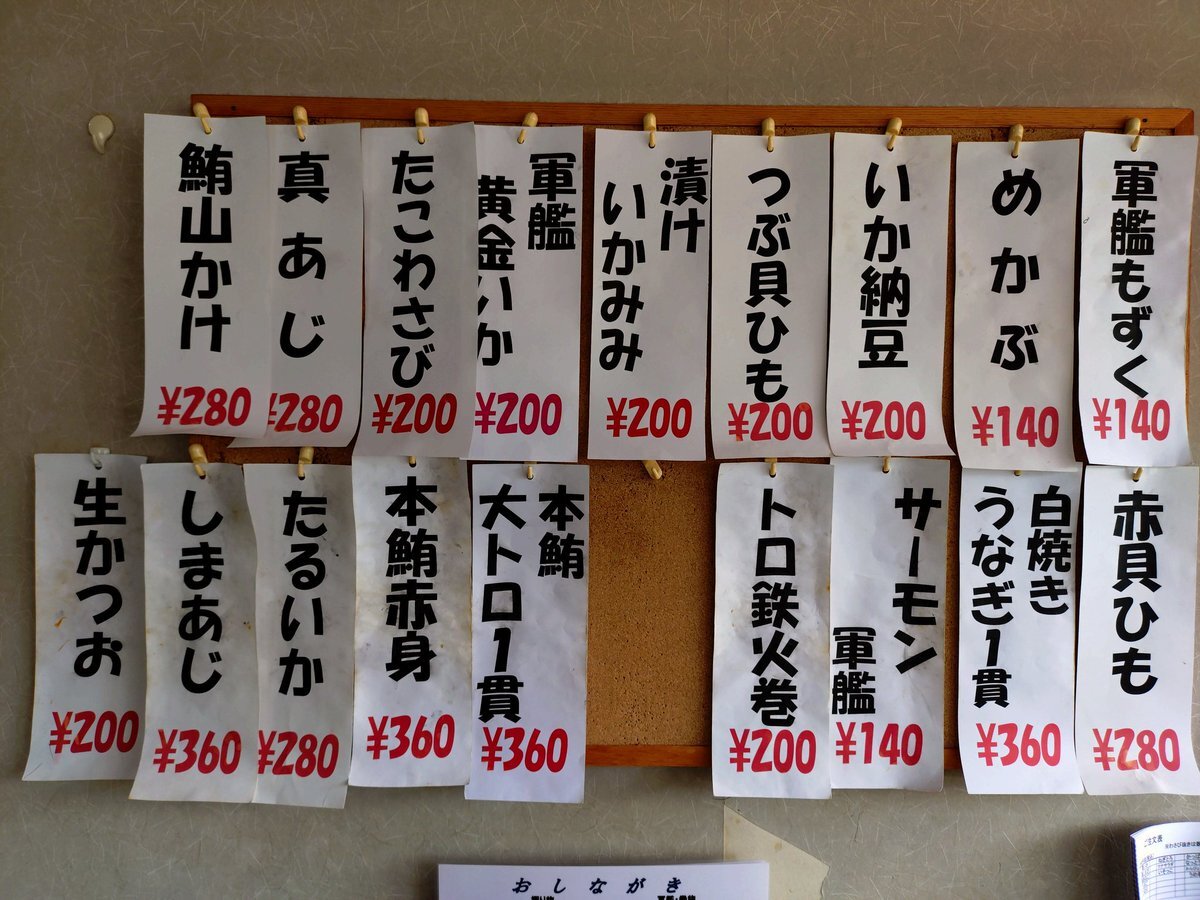 軍艦もずく
¥140
めかぶ
¥140
いか納豆
¥200
つぶ貝ひも
¥200
漬け
いかみみ
¥200
軍艦
黄金いか
¥200
たこわさび
¥200
真あじ
¥280
鮪山かけ
¥280
赤貝ひも
¥280
白焼き
うなぎ1貫
¥360
サーモン
軍艦
¥140
トロ鉄火巻
¥200
本鮪
大トロ1貫
¥360
本鮪赤身
¥360
たるいか
¥280
しまあじ
¥360
生かつお
¥200
おしながき